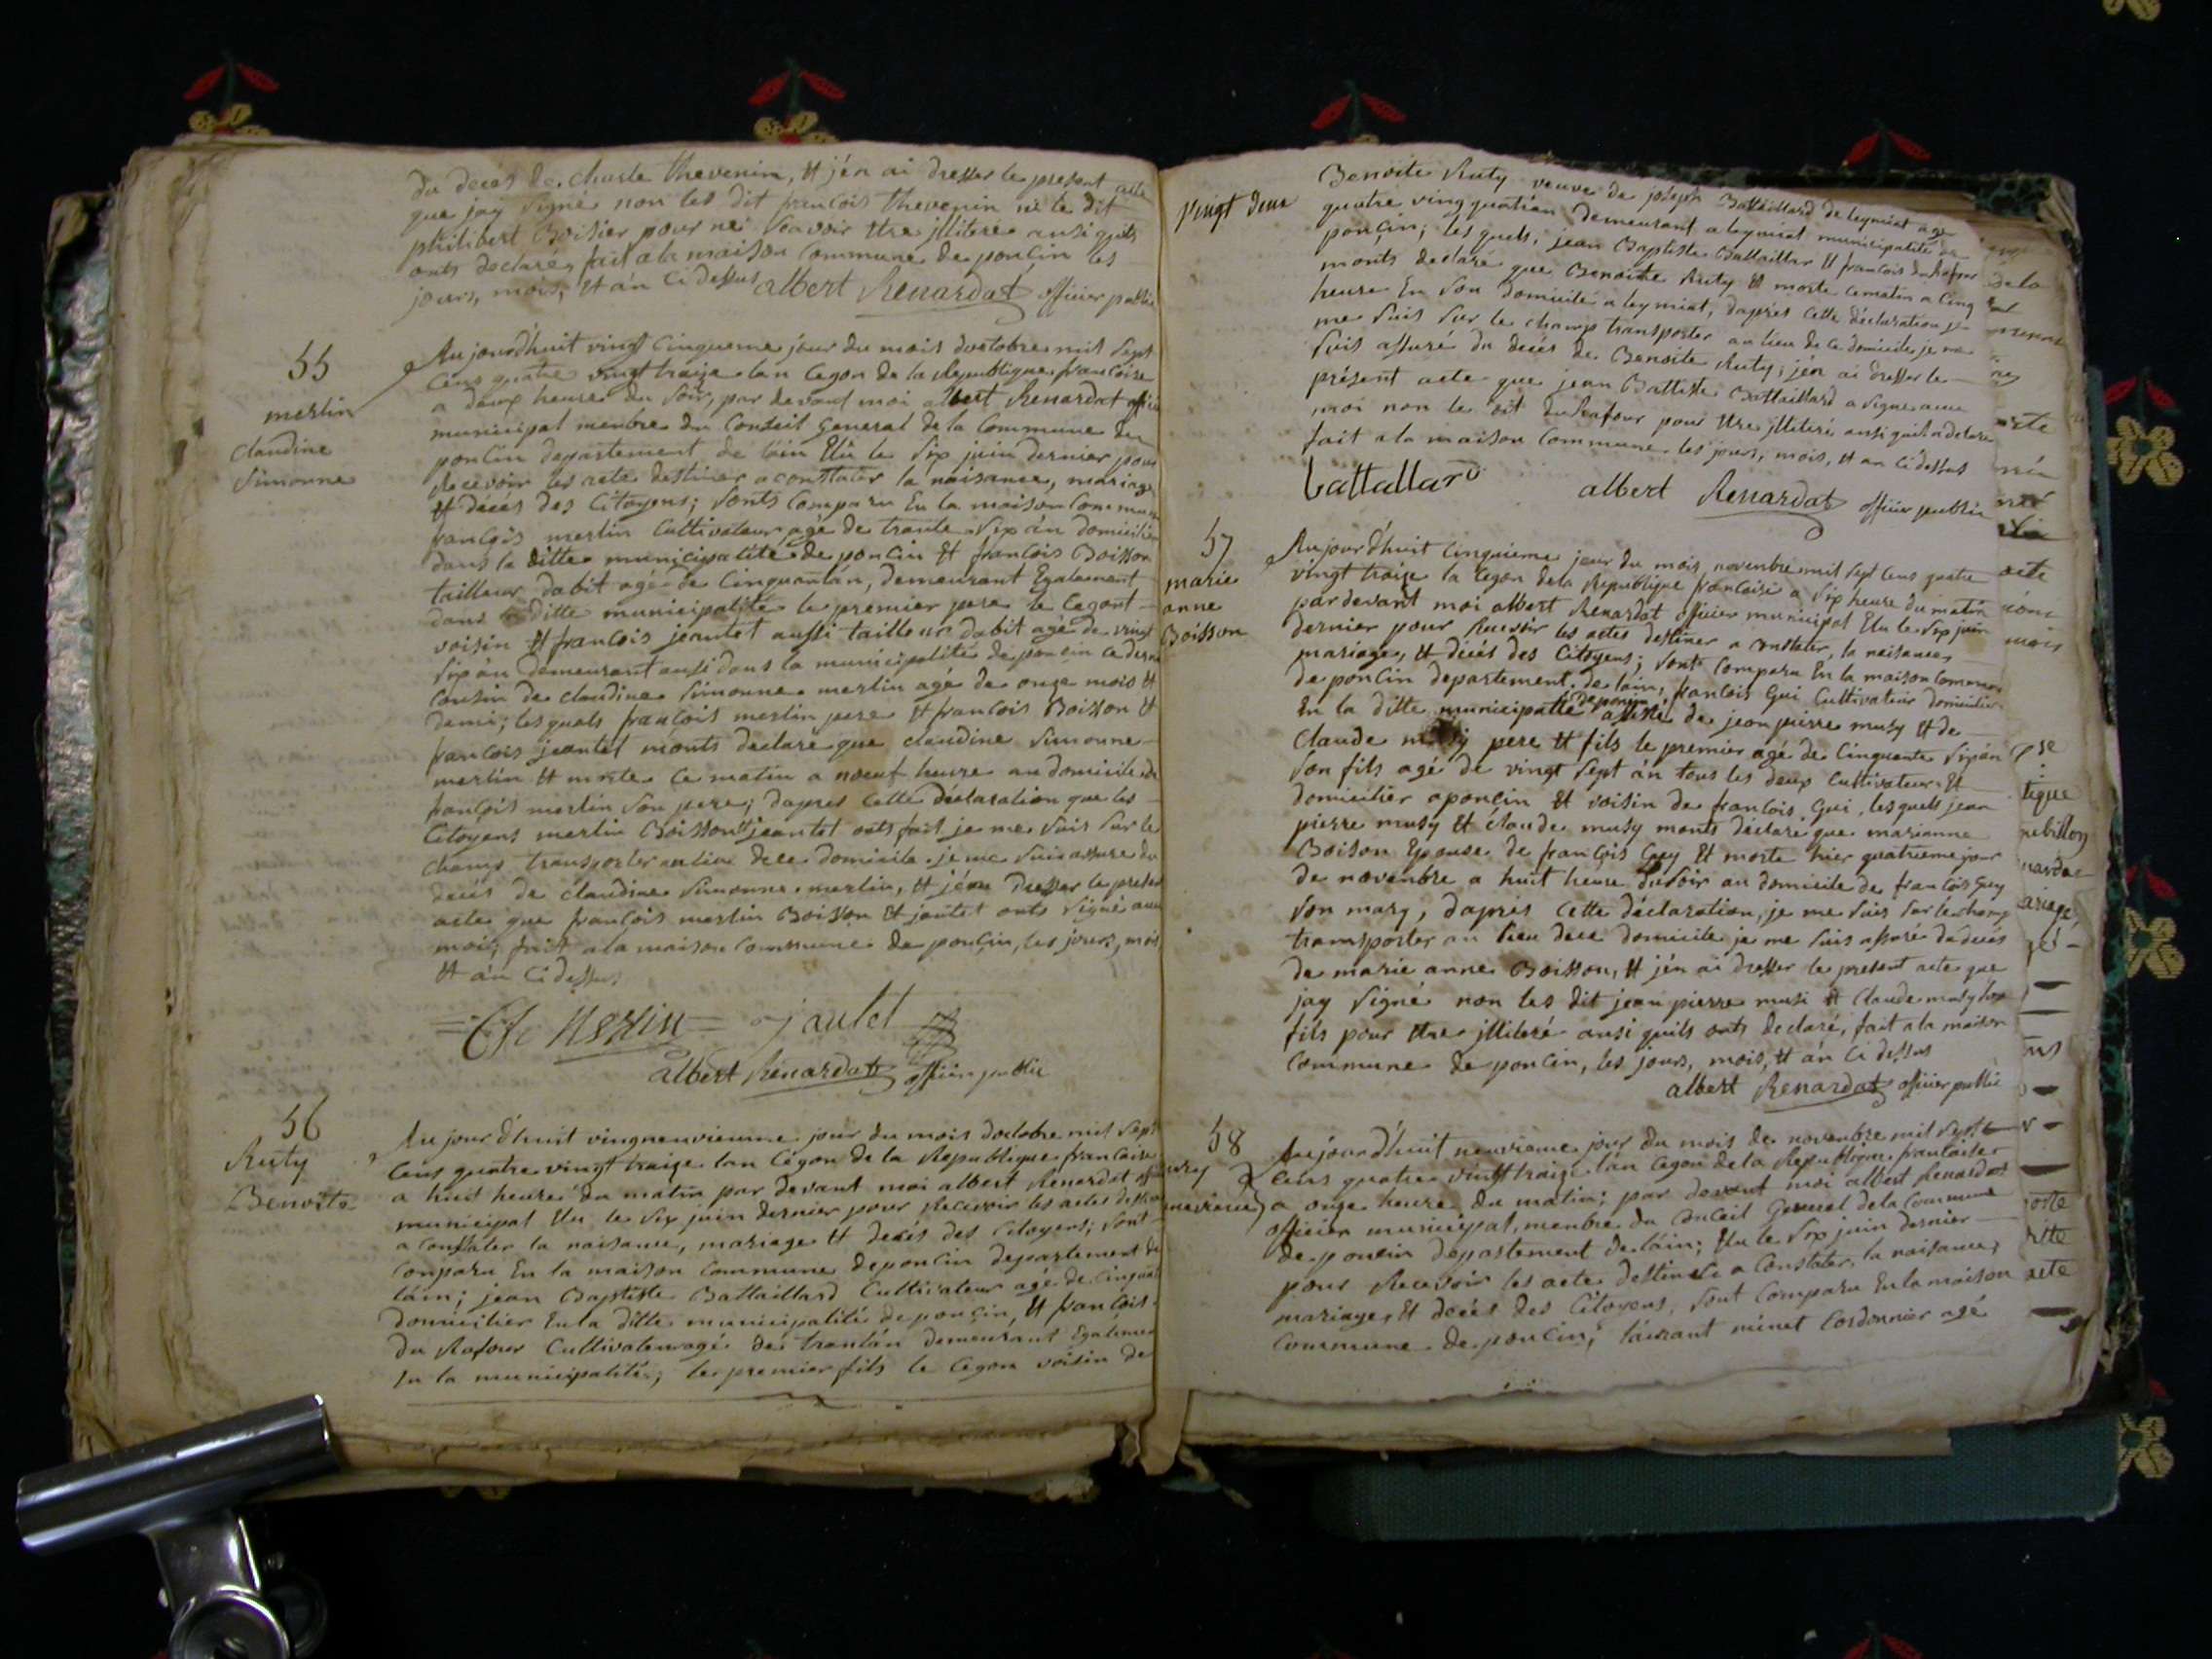 du decés de charle thevenin, Et jén ai dresser le present acte
que jay signé non les dit francois thevenin ni le dit
philibert Boisier pour ne scavoir Etre jlliteré ausi quils
onts declaré, fait ala maison commune de poncin les
jours, mois, Et án Ci dessus albert Renardat officier public
55
merlin
claudine
simonne
Aujourdhuit vingt Cinqueme jour du mois doctobre mil sept
Cens quatre vingt traize lan Cegon de la Republique francoise
a deux heure du soir, par devant moi albert Renardat officie
municipal menbre du Conseil General de la Commune de
poncin departement de láin Elu le six juin dernier pour
Recevoir les acte destiner a constater la naisance, mariage
Et décés des Citoyens; sonts Comparu En la maison Commune
francois merlin Cultivateur agé de trante six án domicilié
dans la ditte municipalité de poncin Et francois Boisson
tailleur dabit agé de Cinquantán, demeurant Egalement
dans la ditte municipalité le premier pere le Cegont
voisin Et francois jeantet aussi tailleur dabit agé de vingt
six án demeurant ausi dans la municipalité de poncin Ce dernie
Cousin de claudine simonne merlin agé de onze mois Et
demi; les quels francois merlin pere Et francois Boisson Et
francois jeantet monts declaré que claudine simonne
merlin Et morte Ce matin a noeuf heure au domicile de
francois merlin son pere; dapres Cette déclaration que les
Citoyens merlin Boisson Et jeantet onts fait, je me suis sur le
champ transporter au lieu de ce domicile, je me suis assuré du
decés de claudine simonne merlin, Et jén ai dresser le present
acte que francois merlin Boisson Et jantet onts signé avec
moi; fait ala maison Commune de poncin, les jours, mois
Et án Ci dessus
merlin jantet
albert Renardat officier public
56
Ruty
Benoite
Aujourdhuit vingneuvieme jour du mois doctobre mil sept
Cens quatre vingt traize lan Cegon de la Republique francaise
a huit heure du matin par devant moi albert Renardat officie
municipal Elu le six juin dernier pour Recevoir les actes destiner
a constater la naisance, mariage Et decés des Citoyens; sont
Conparu En la maison Commune de poncin departement de
láin; jean Baptiste Battaillard Cultivateur agé de Cinquan
domicilier En la ditte municipalité de poncin, Et francois
du Rafour Cultivateur agé de trantán demeurant Egalemen
En la municipalité; le premier fils le Cegon voisin de
vingt deux
Benoite Ruty veuve de joseph Battaillard de leymiat agé
quatre ving quatre án demeurant a leymiat municipalité de
poncin; les quels, jean Baptiste Battaillar Et francois du Rafour
monts declaré que Benoitte Ruty Et morte Cematin a Cinq
heure En son domicile a leymiat, daprés Cette déclaration je
me suis sur le champ transporter au lieu de Ce domicile je me
suis assuré du decés de Benoite Ruty, jén ai dresser le
présent acte que jean Battiste Battaillard a signé avec
moi non le dit du Rafour pour Etre jlliteré ausi quil a declaré
fait ala maison Commune les jours, mois, Et an Ci dessus
battallard albert Renardat officier public
57
marie
anne
Boisson
Aujourdhuit Cinquieme jour du mois, novenbre mil sept Cens quatre
vingt traize la Cegon dela Republique francoise a six heure du matin
par devant moi albert Renardat officier municipal Elu le six juin
dernier pour Recevoir les actes destiner a constater, la naisance,
mariage, Et décés des Citoyens; sont Comparu En la maison Commune
de poncin departement de láin, francois Gui Cultivateur domicilier
En la ditte municipalité de poncin assisté de jean pierre musy Et de
Claude musy pere Et fils le premier agé de Cinquante six án
son fils agé de vingt sept án tous les deux Cultivateur Et
domicilier a poncin Et voisin de francois Gui, lesquels jean
pierre musy Et claude musy monts déclaré que marianne
Boison Epouse de francois Guy Et morte hier quatrieme jour
de novenbre a huit heure du soir au domicile de francois Guy
son mary, daprés Cette déclaration, je me suis sur le champ
transporter au lieu de ce domicile je me suis assuré du decés
de marie anne Boisson, Et jén ai dresser le present acte que
jay signé non les dit jean pierre musi Et Claude musy son
fils pour Etre jlliteré ausi quils onts declaré, fait ala maison
Commune de poncin, les jours, mois, Et án Ci dessus
albert Renardat officier public
58
Aujourdhuit neuvieme jour du mois de novenbre mil sept
Cens quatre vingt traize lán Cegon dela Republique francaise
a onze heure du matin; par devant moi albert Renardat
officier municipal, menbre du Conceil General dela Commune
de poncin departement de láin; Elu le six juin dernier
pour Recevoir les acte destiner a Constater, la naisance,
mariage, Et decés des Citoyens, sont Comparu En la maison
Commune de poncin; laurant minet Cordonnier agé